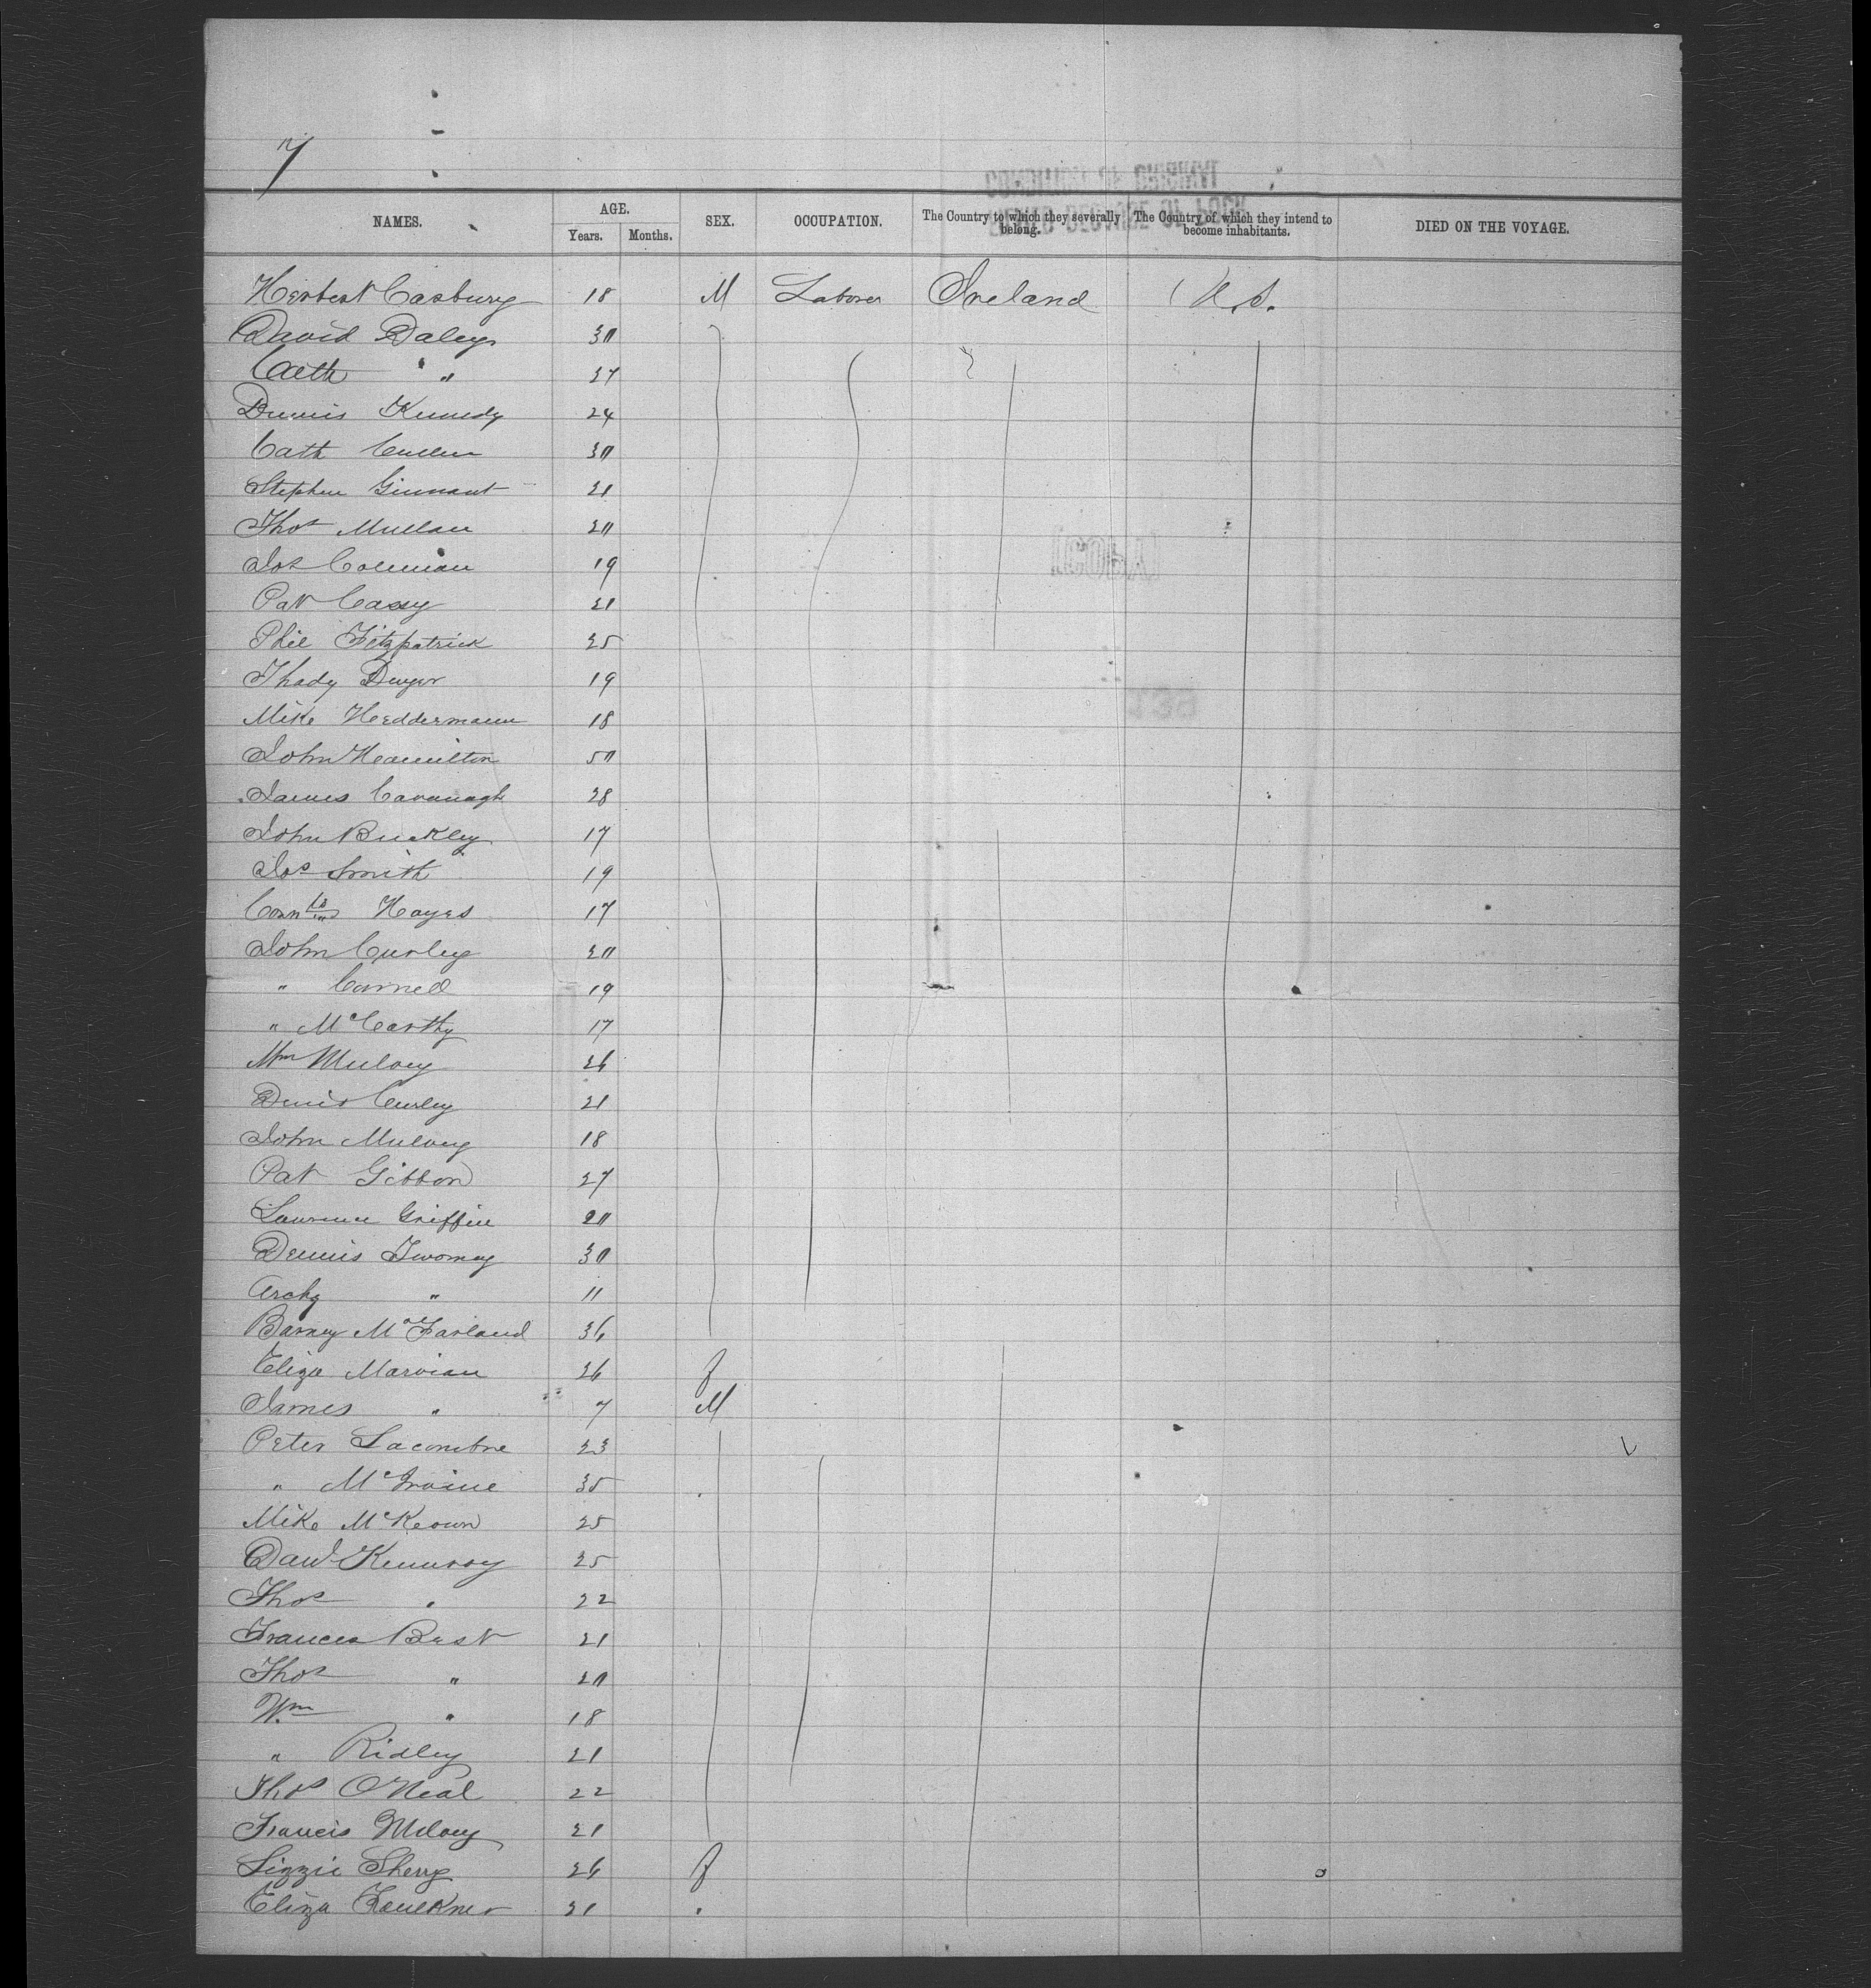 7
NAMES. AGE. Years. Months. SEX. OCCUPATION. The Country to which they severally belong. The Country of which they intend to become inhabitants. DIED ON THE VOYAGE.
Herbert Casbury 18 M Laborer Ireland U.S.
David Daley 30
Cath " 37
Dennis Kennedy 24
Cath Cullen 30
Stephen Ginnant 21
Thos Mullan 20
Jos Conman 19
Pat Casey 21
Phil Fitzpatrick 25
Thady Dwyer 19
Mike Heddermann 18
John Hamilton 50
James Cavanagh 28
John Buckley 17
Jos Smith 19
Corn Hayes 17
John Curley 20
" Cornell 19
" McCarthy 17
Wm Muloey 26
Denis Curley 21
John Mulvey 18
Pat Gibbon 27
Lawrence Griffin 20
Dennis Twomey 30
Archy " 11
Barney McFarland 36
Eliza Marvian 26 f
James " 7 M
Peter Lacombre 23
" McGraine 35
Mike McKeown 25
Danl Kennroy 25
Thos " 22
Frances Best 21
Thos " 20
Wm " 18
" Ridley 21
Thos O'Neal 22
Francis Meloey 21
Lizzie Sherry 26 f
Eliza Faulkner 21